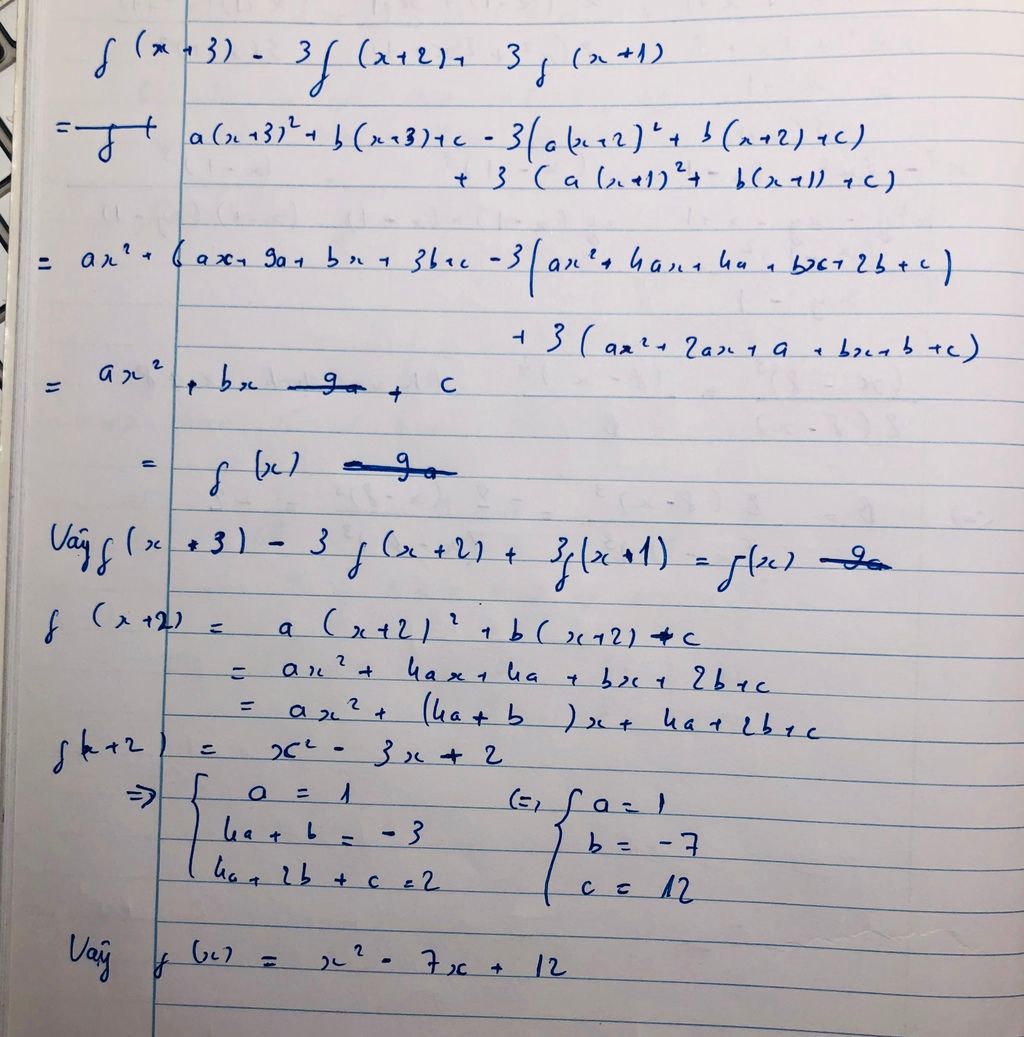 f(x+3) - 3f(x+2) + 3f(x+1)
= f + a(x+3)² + b(x+3) + c - 3(a(x+2)² + b(x+2) + c)
+ 3(a(x+1)² + b(x+1) + c)
= ax² + 6ax + 9a + bx + 3b + c - 3(ax² + 4ax + 4a + bx + 2b + c)
+ 3(ax² + 2ax + a + bx + b + c)
= ax² + bx - 9a + c
= f(x) - 9a
Vậy f(x+3) - 3f(x+2) + 3f(x+1) = f(x) - 9a
f(x+2) = a(x+2)² + b(x+2) + c
= ax² + 4ax + 4a + bx + 2b + c
= ax² + (4a + b)x + 4a + 2b + c
f(x+2) = x² - 3x + 2
=> { a = 1 (=) { a = 1
4a + b = -3 b = -7
4a + 2b + c = 2 c = 12
Vậy f(x) = x² - 7x + 12